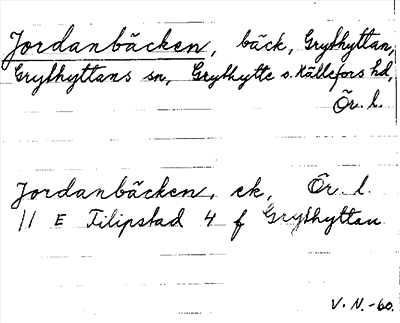 Jordanbäcken, bäck, Grythyttan,
Grythyttans sn, Grythytte o. Hällefors hd,
Ör. l.
Jordanbäcken, ek, Ör. l.
11 E Filipstad 4 f Grythyttan
V. N. -60.